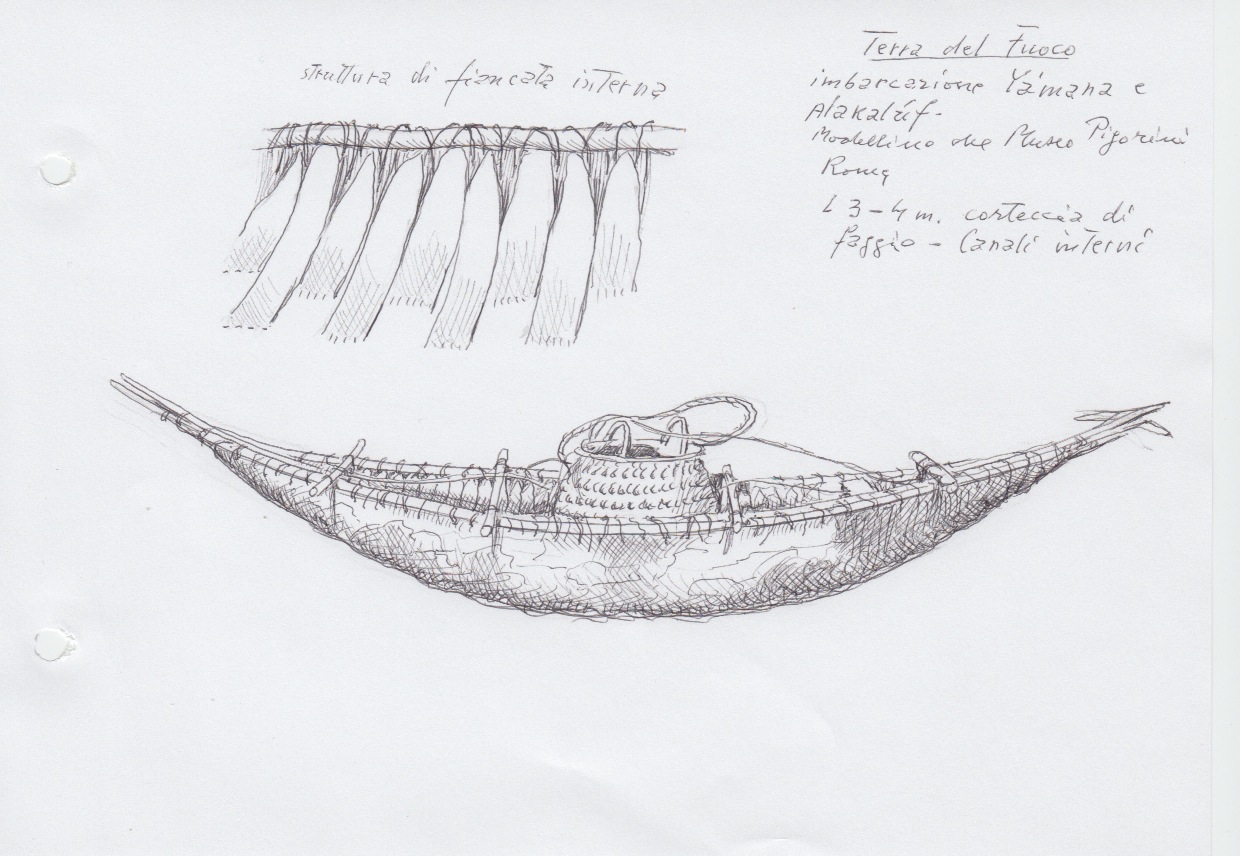 struttura di fiancata interna
Terra del Fuoco
imbarcazione Yámana e
Alakalúf-
Modellino che Museo Pigorini
Roma
L 3-4 m. corteccia di
faggio - Canali interni